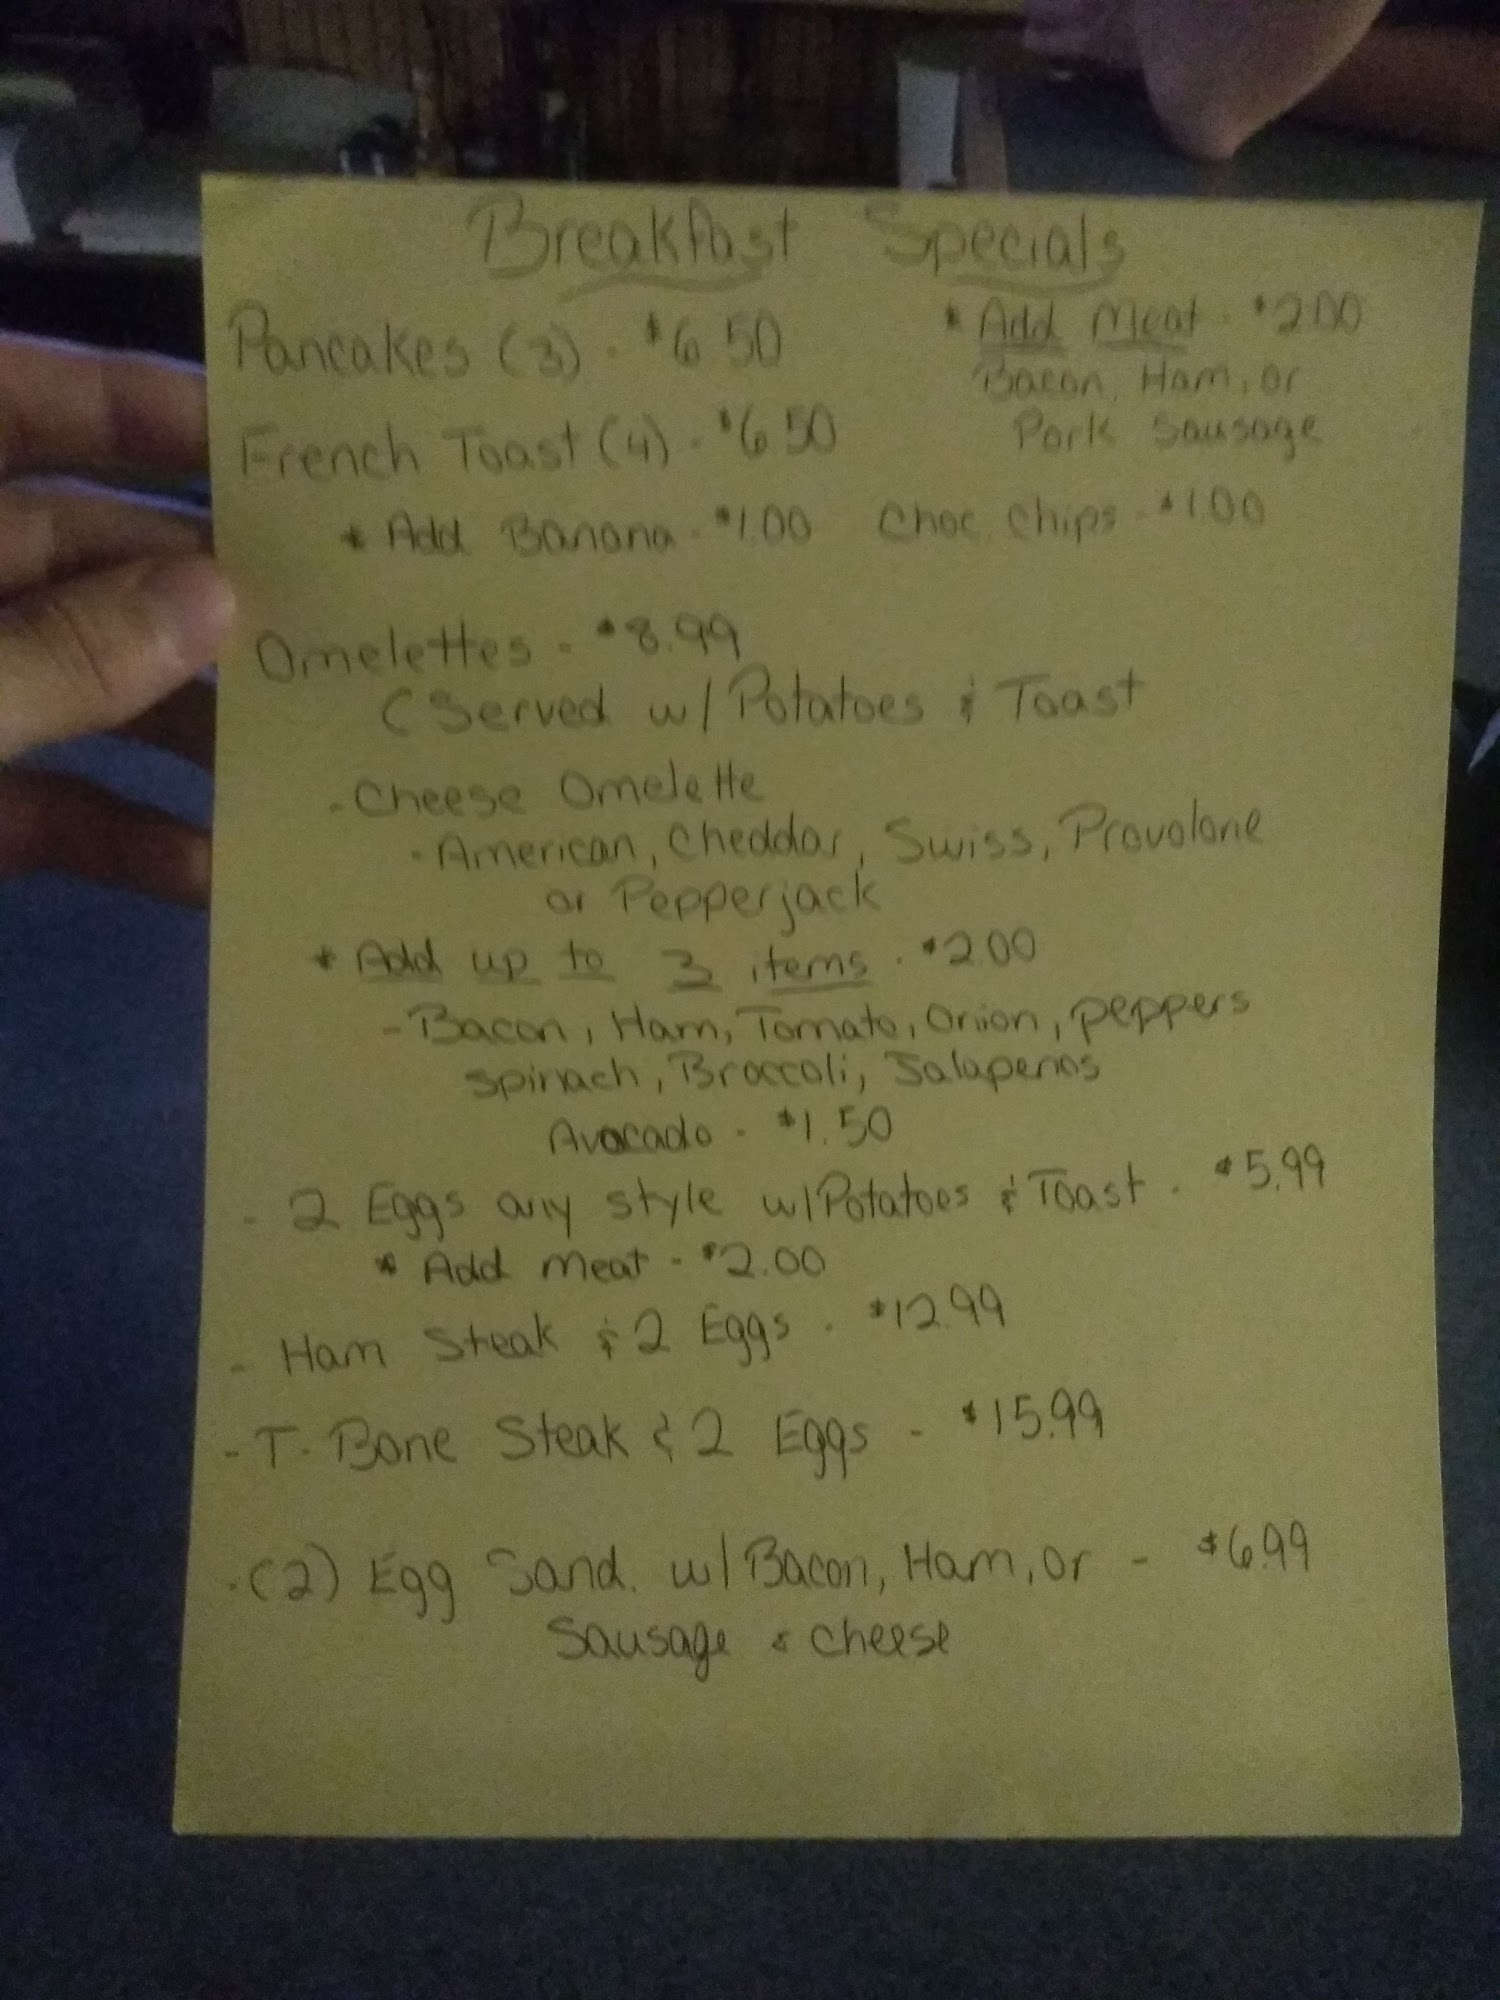 Breakfast Specials
Pancakes (3) - $6.50
* Add Meat - $2.00
Bacon, Ham, or
Pork Sausage
French Toast (4) - $6.50
* Add Banana - $1.00 Choc. Chips - $1.00
Omelettes - $8.99
(Served w/ Potatoes & Toast
- Cheese Omelette
- American, Cheddar, Swiss, Provolone
or Pepperjack
* Add up to 3 items - $2.00
- Bacon, Ham, Tomato, Onion, peppers
spinach, Broccoli, Jalapenos
Avocado - $1.50
- 2 Eggs any style w/Potatoes & Toast - $5.99
* Add meat - $2.00
- Ham Steak & 2 Eggs - $12.99
- T-Bone Steak & 2 Eggs - $15.99
- (2) Egg Sand. w/ Bacon, Ham, or - $6.99
Sausage & cheese